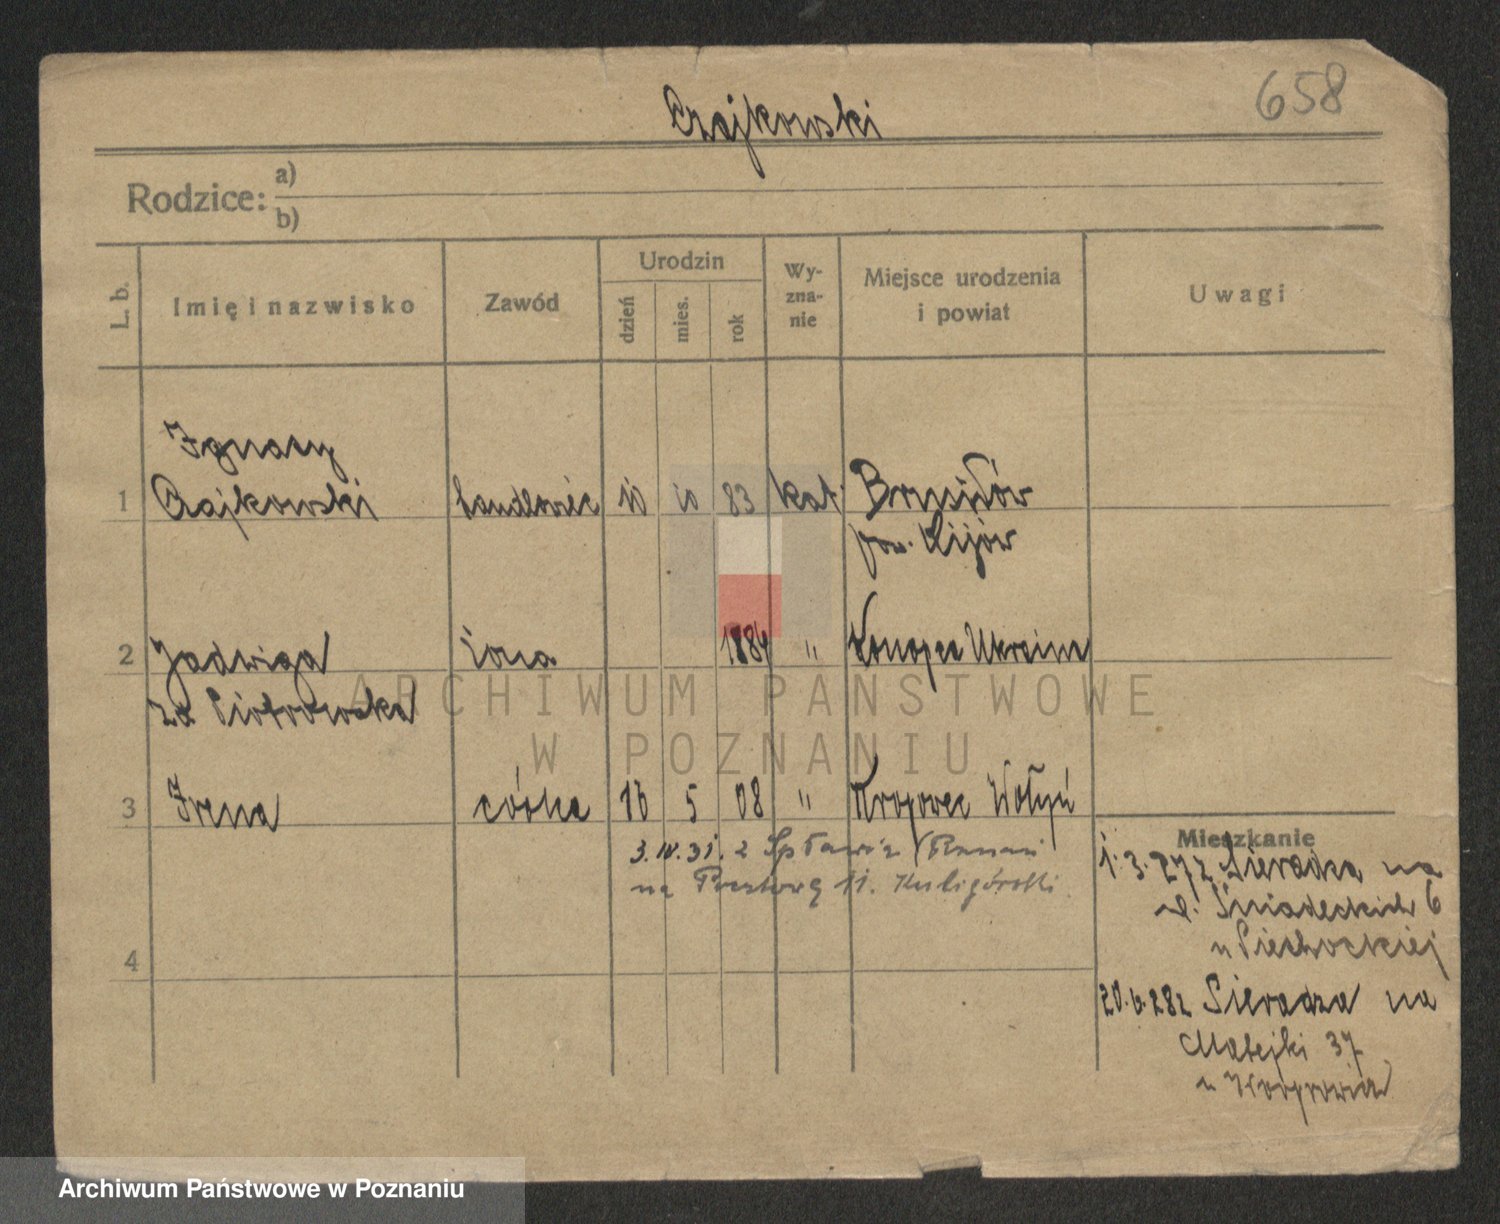 658
Czajkowski
Rodzice:
a)
b)
L. b.
Imię i nazwisko
Zawód
Urodzin
dzień
mies.
rok
Wy-
zna-
nie
Miejsce urodzenia
i powiat
Uwagi
Ignacy
1 Czajkowski handlowiec 10 10 83 kat. Brusiłów
pow. Kijów
2 Jadwiga żona 1884 " Ukraina
zd Piotrowska
3 Irena córka 16 5 08 " Wołyń
Mieszkanie
3.IV.31. z Spławie
na Pocztową 11. Kuligórski
1.3.27 z Sieradza na
ul. Śniadeckich 6
u Piechockiej
4
20.6.28 z Sieradza na
Matejki 37
u
ARCHIWUM PAŃSTWOWE
W POZNANIU
Archiwum Państwowe w Poznaniu